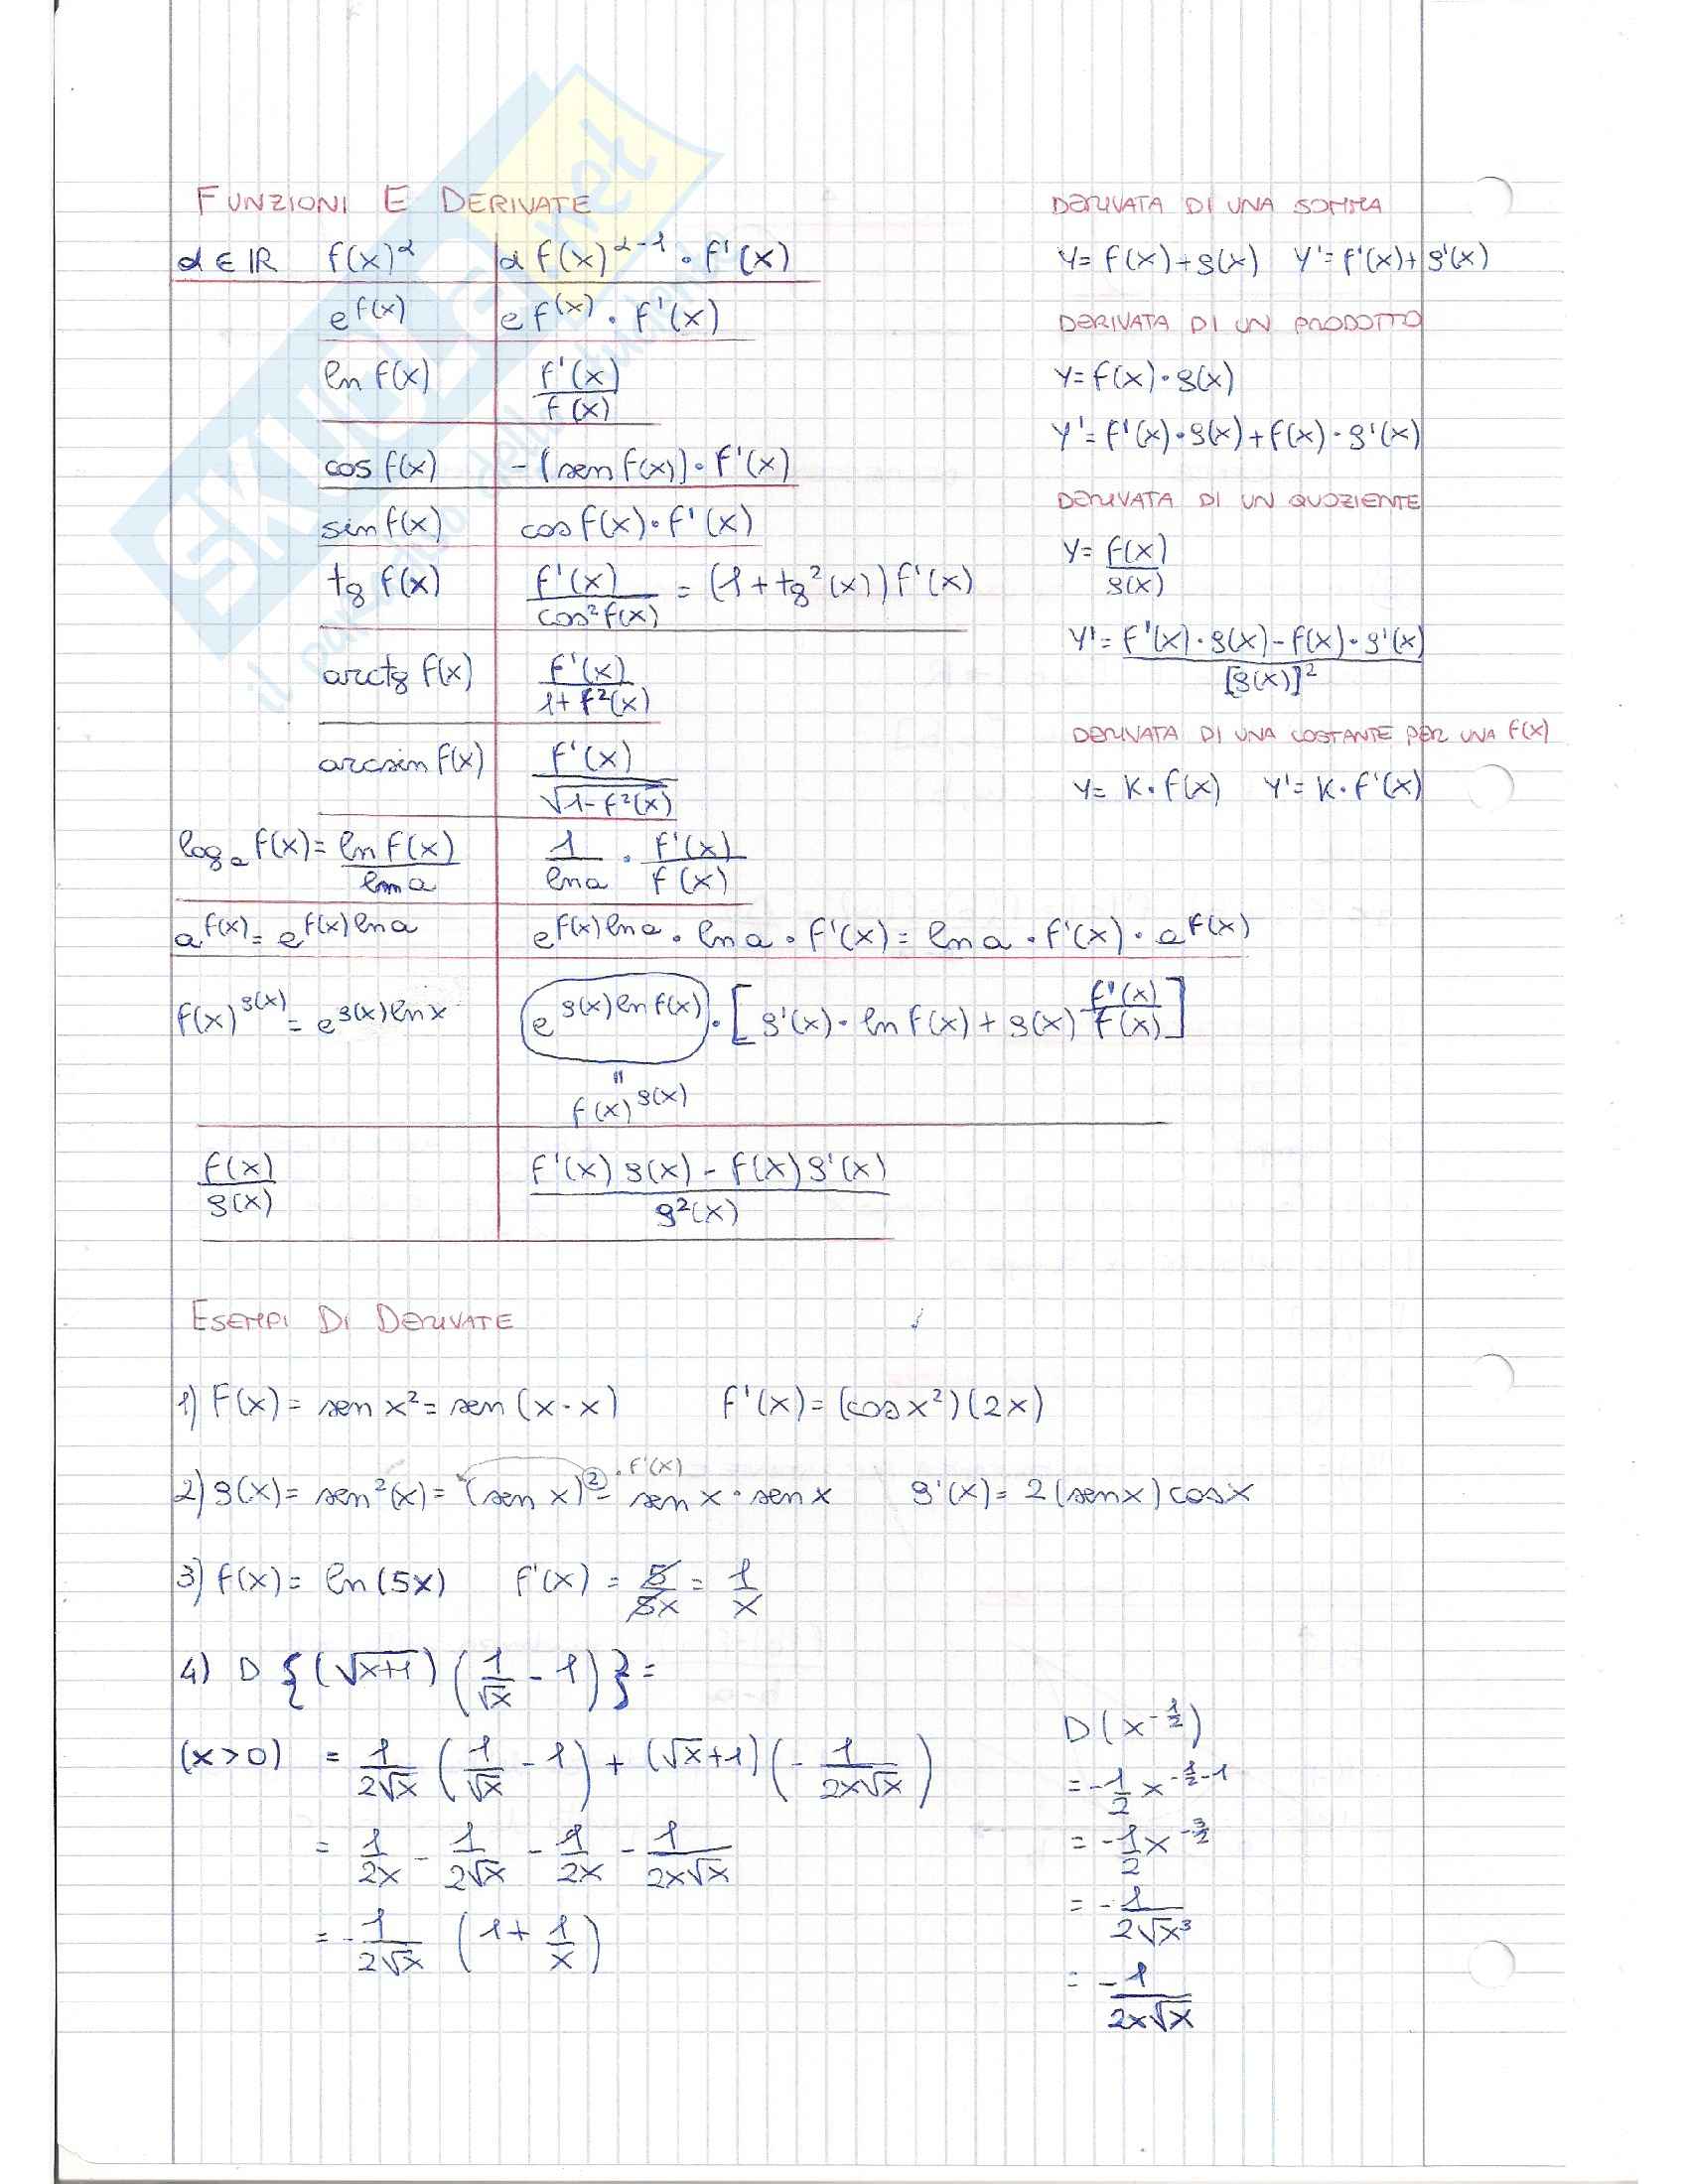 FUNZIONI E DERIVATE
α ∈ ℝ f(x)^α α f(x)^(α-1) · f'(x)
e^f(x) e^f(x) · f'(x)
ln f(x) f'(x)/f(x)
cos f(x) -(sen f(x)) · f'(x)
sin f(x) cos f(x) · f'(x)
tg f(x) f'(x)/cos²f(x) = (1+tg²(x)) f'(x)
arctg f(x) f'(x)/1+f²(x)
arcsin f(x) f'(x)/√1-f²(x)
log_a f(x) = ln f(x)/ln a 1/ln a · f'(x)/f(x)
a^f(x) = e^f(x) ln a e^f(x) ln a · ln a · f'(x) = ln a · f'(x) · a^f(x)
f(x)^g(x) = e^g(x) ln x e^g(x) ln f(x) · [g'(x) · ln f(x) + g(x) f'(x)/f(x)]
"
f(x)^g(x)
f(x)/g(x) f'(x) g(x) - f(x) g'(x)/g²(x)
DERIVATA DI UNA SOMMA
y = f(x) + g(x) y' = f'(x) + g'(x)
DERIVATA DI UN PRODOTTO
y = f(x) · g(x)
y' = f'(x) · g(x) + f(x) · g'(x)
DERIVATA DI UN QUOZIENTE
y = f(x)/g(x)
y' = f'(x) · g(x) - f(x) · g'(x)/[g(x)]²
DERIVATA DI UNA COSTANTE PER UNA f(x)
y = K · f(x) y' = K · f'(x)
ESEMPI DI DERIVATE
1) f(x) = sen x² = sen (x · x) f'(x) = (cos x²)(2x)
2) g(x) = sen²(x) = (sen x)² = sen x · sen x g'(x) = 2(sen x) cos x
· f'(x)
3) f(x) = ln (5x) f'(x) = 5/5x = 1/x
4) D {(√x+1) (1/√x - 1)} =
(x > 0) = 1/2√x (1/√x - 1) + (√x+1) (-1/2x√x)
= 1/2x - 1/2√x - 1/2x - 1/2x√x
= -1/2√x (1 + 1/x)
D (x^-1/2)
= -1/2 x^(-1/2-1)
= -1/2 x^-3/2
= -1/2√x³
= -1/2x√x
SKUOLA.net